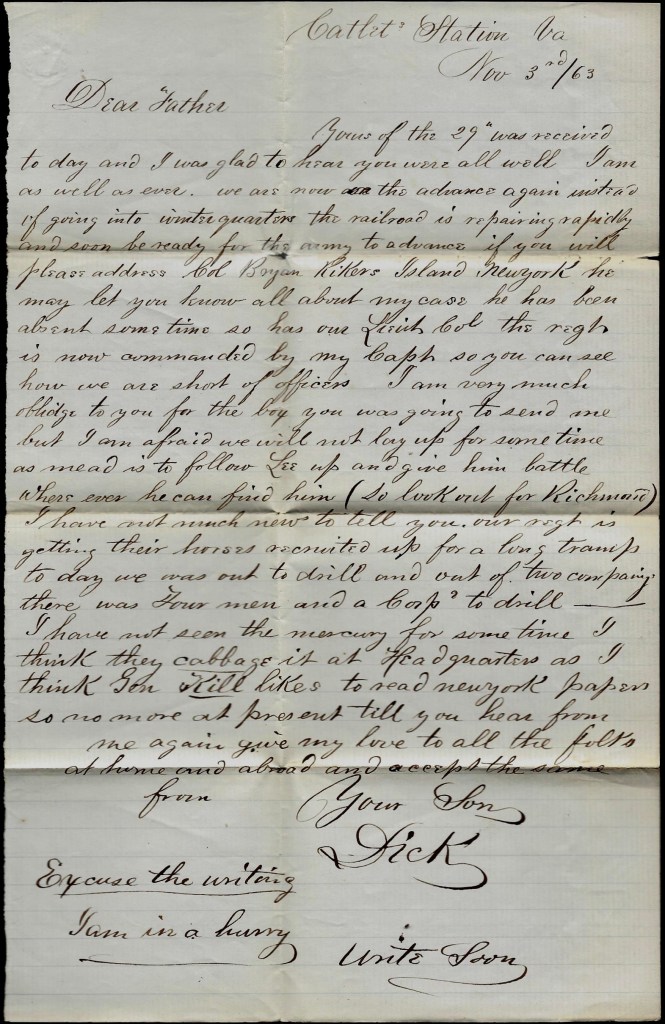 Catlets Station Va
Nov 3rd/63
Dear Father
Yours of the 29" was received
to day and I was glad to hear you were all well I am
as well as ever. we are now on the advance again instead
of going into winter quarters the railroad is repairing rapidly
and soon be ready for the army to advance if you will
please address Col Bryan Rikers Island Newyork he
may let you know all about my case he has been
absent sometime so has our Lieut Col the regt
is now commanded by my Capt so you can see
how we are short of officers I am very much
oblidge to you for the box you was going to send me
but I am afraid we will not lay up for sometime
as mead is to follow Lee up and give him battle
where ever he can find him (so look out for Richmond)
I have not much news to tell you. our regt is
getting their horses recruited up for a long tramp
to day we was out to drill and out of two companys
there was Four men and a Corps to drill —
I have not seen the mercury for sometime I
think they cabbage it at Headquarters as I
think Gen Kill likes to read newyork papers
so no more at present till you hear from
me again give my love to all the folks
at home and abroad and accept the same
from Your Son
Dick
Excuse the writing
I am in a hurry
Write Soon